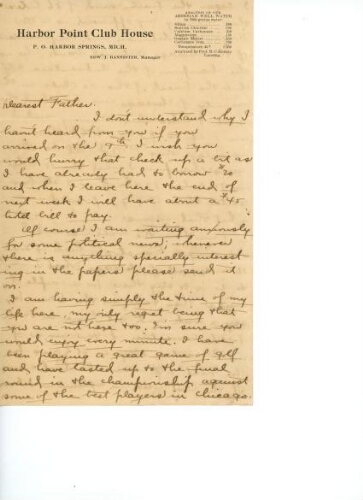 Harbor Point Club House
P. O. HARBOR SPRINGS, MICH.
EDW. J. BANNISTER, Manager
ANALYSIS OF THE
ARTESIAN WELL WATER
Dearest Father:
I don't understand why I
haven't heard from you if you
arrived on the 9th. I wish you
would hurry that check up a bit as
I have already had to borrow $20
and when I leave here the end of
next week I will have about a $45
hotel bill to pay.
Of course I am waiting anxiously
for some political news; whenever
there is anything specially interest
ing in the papers please send it
on.
I am having simply the time of my
life here, my only regret being that
you are not here too. I'm sure you
would enjoy every minute. I have
been playing a great game of golf
and have lasted up to the final
round in the championship against
some of the best players in Chicago.